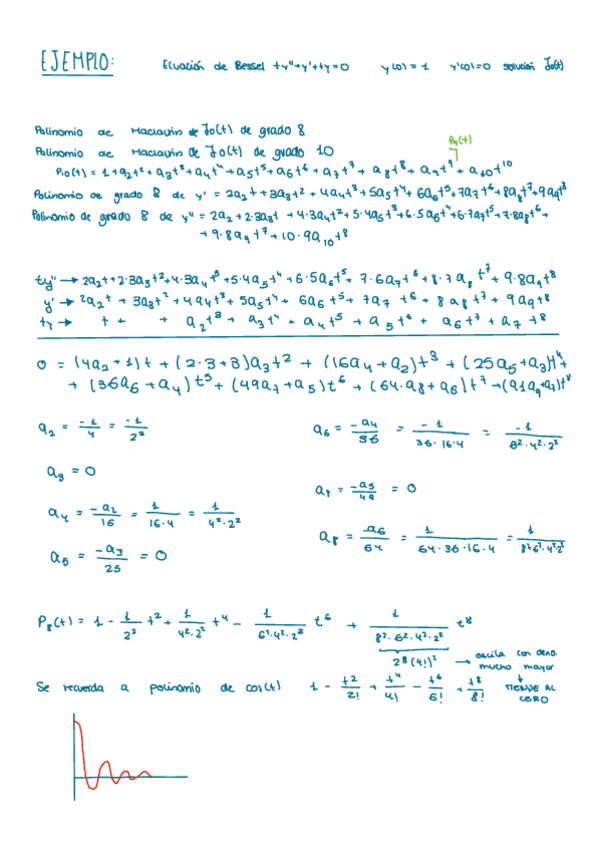 EJEMPLO: Ecuación de Bessel ty''+y'+ty=0 y(0)=1 y'(0)=0 solución J₀(t)
Polinomio de Maclaurin de J₀(t) de grado 8
Polinomio de Maclaurin de J₀(t) de grado 10
P₉(t)
P₁₀(t) = 1 + a₂t² + a₃t³ + a₄t⁴ + a₅t⁵ + a₆t⁶ + a₇t⁷ + a₈t⁸ + a₉t⁹ + a₁₀t¹⁰
Polinomio de grado 8 de y' = 2a₂t + 3a₃t² + 4a₄t³ + 5a₅t⁴ + 6a₆t⁵ + 7a₇t⁶ + 8a₈t⁷ + 9a₉t⁸
Polinomio de grado 8 de y'' = 2a₂ + 2·3a₃t + 4·3a₄t² + 5·4a₅t³ + 6·5a₆t⁴ + 6·7a₇t⁵ + 7·8a₈t⁶ +
+ 9·8a₉t⁷ + 10·9a₁₀t⁸
ty'' → 2a₂t + 2·3a₃t² + 4·3a₄t³ + 5·4a₅t⁴ + 6·5a₆t⁵ + 7·6a₇t⁶ + 8·7a₈t⁷ + 9·8a₉t⁸
y' → 2a₂t + 3a₃t² + 4a₄t³ + 5a₅t⁴ + 6a₆t⁵ + 7a₇t⁶ + 8a₈t⁷ + 9a₉t⁸
ty → t + + a₂t³ + a₃t⁴ + a₄t⁵ + a₅t⁶ + a₆t⁷ + a₇t⁸
0 = (4a₂+1)t + (2·3+3)a₃t² + (16a₄+a₂)t³ + (25a₅+a₃)t⁴ +
+ (36a₆+a₄)t⁵ + (49a₇+a₅)t⁶ + (64·a₈+a₆)t⁷ + (81a₉+a₇)t⁸
a₂ = -1/4 = -1/2²
a₃ = 0
a₄ = -a₂/16 = 1/16·4 = 1/4²·2²
a₅ = -a₃/25 = 0
a₆ = -a₄/36 = -1/36·16·4 = -1/6²·4²·2²
a₇ = -a₅/49 = 0
a₈ = -a₆/64 = 1/64·36·16·4 = 1/8²·6²·4²·2²
P₈(t) = 1 - 1/2² t² + 1/4²·2² t⁴ - 1/6²·4²·2² t⁶ + 1/8²·6²·4²·2² t⁸
2⁸(4!)² → oscila con deno. mucho mayor
Se recuerda a polinomio de cos(t) 1 - t²/2! + t⁴/4! - t⁶/6! + t⁸/8!
TIENDE AL CERO